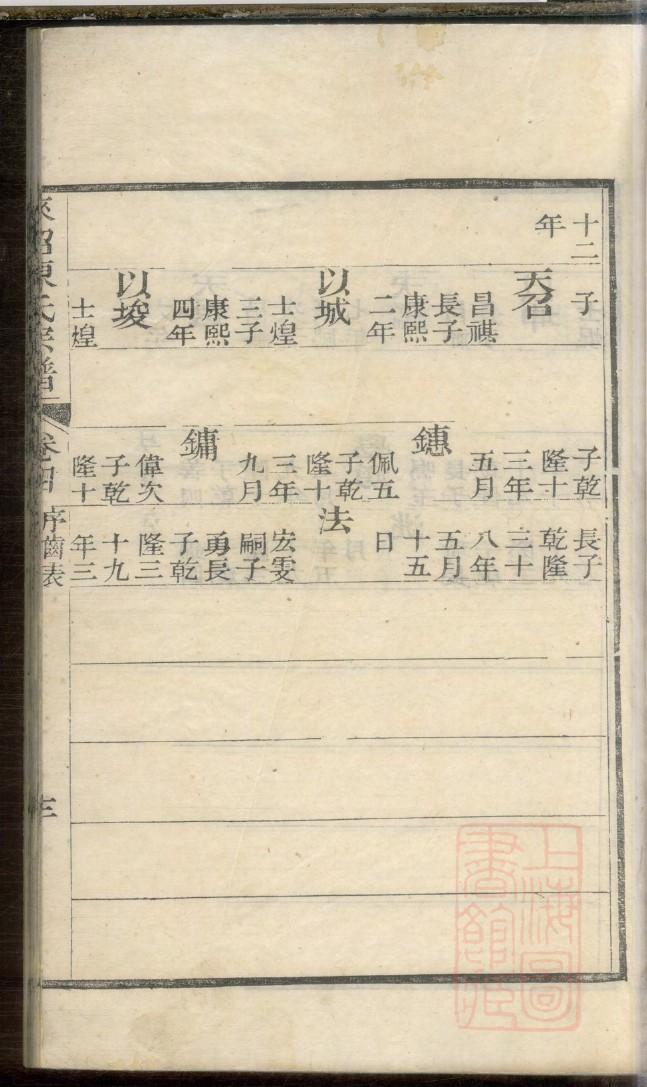 十二
年
子
天召
昌祺
長子
康熙
二年
以城
士煌
三子
康熙
四年
以埈
士煌
子乾
隆十
三年
五月
鏸
佩五
子乾
隆十
三年
九月
鏞
偉次
子乾
隆十
長子
乾隆
三十
八年
五月
十五
日
法
宏雯
嗣子
勇長
子乾
隆三
十九
年三
氏宗譜
卷四
序齒表
上海圖
書館藏